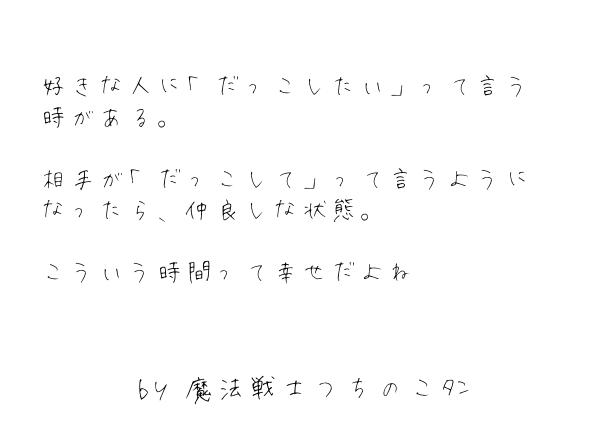 好きな人に「だっこしたい」って言う
時がある。
相手が「だっこして」って言うように
なったら、仲良しな状態。
こういう時間って幸せだよね
by 魔法戦士つちのこタン